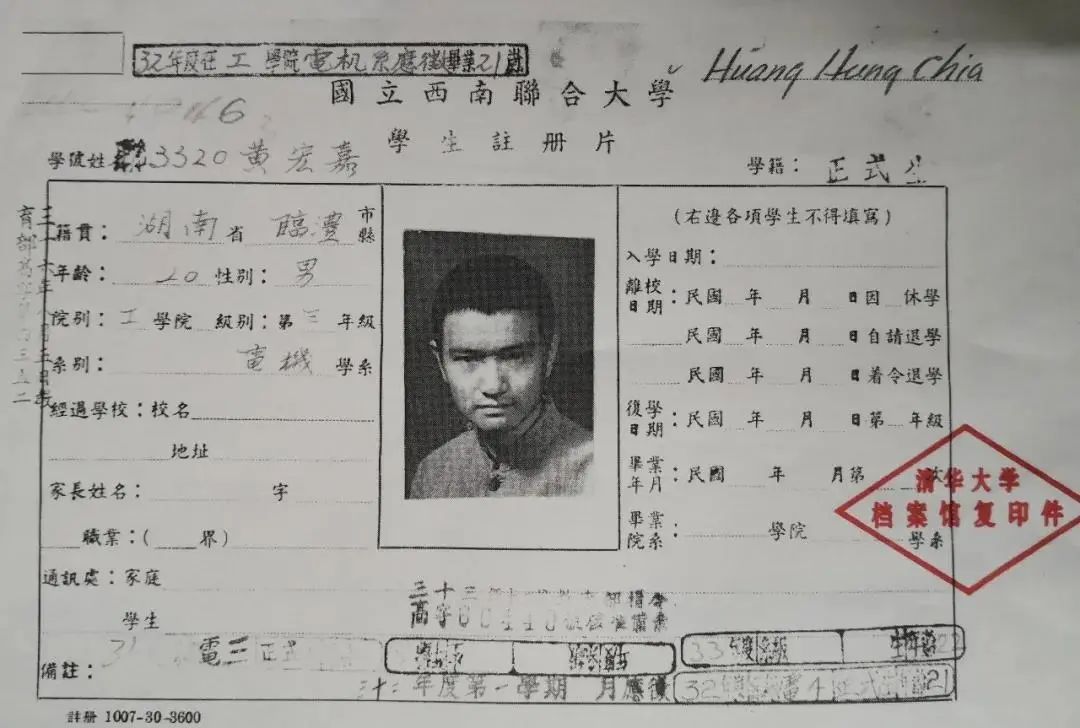 32年度在工學院電机系應徵畢業21歲
Huang Hung Chia
國立西南聯合大學
6
學生註冊片
學號姓 3320 黃宏嘉
學籍：正式生
籍貫：湖南省臨澧市縣
年齡：20 性別：男
院別：工學院 級別：第三年級
系別：電機學系
經過學校：校名
地址
家長姓名： 字
職業：( 界)
通訊處：家庭
學生
備註：31 電三正式
(右邊各項學生不得填寫)
入學日期：
離校日期：民國 年 月 日因 休學
民國 年 月 日自請退學
民國 年 月 日着令退學
復學日期：民國 年 月 日第 年級
畢業年月：民國 年 月第 次
畢業院系： 學院 學系
清华大学
档案馆复印件
三十三
高字
33年度 級
年度第一學期 月應徵
32 4 正式 21
註冊 1007-30-3600